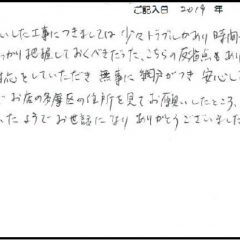 ご記入日 2019 年
いした工事につきましては 少々トラブルがあり 時間
っかり把握しておくべきだった、こちらの反省点もあり
対応をしていただき 無事に網戸がつき 安心して
で お店の多摩区の住所を見てお願いしたところ、
ったようで お世話になり ありがとうございました